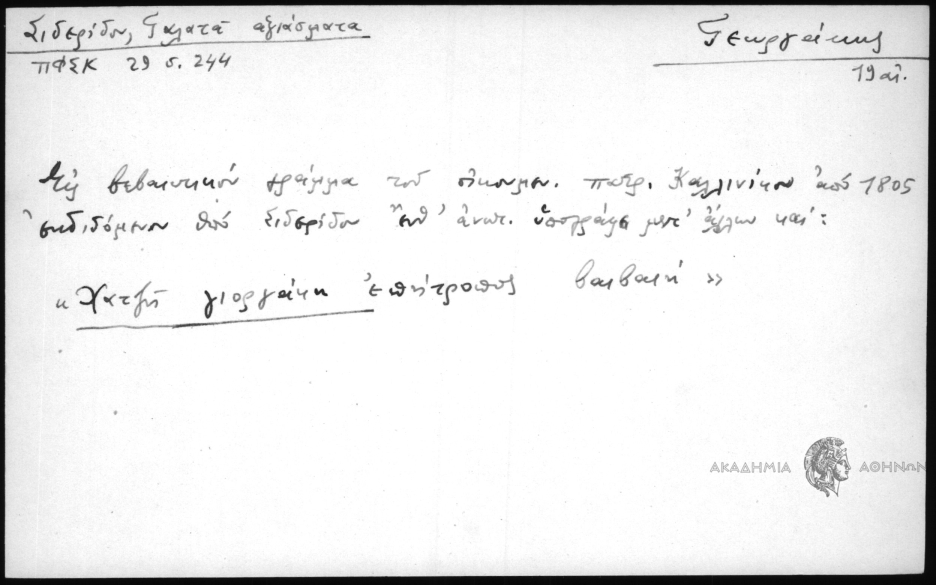 Σιδερίδου, Γαλατᾶ ἁγιάσματα
ΠΦΣΚ 29 σ. 244
Γεωργάκης
19 αἰ.
Εἰς βεβαιωτικόν γράμμα τοῦ οἰκουμεν. πατρ. Καλλινίκου ἀπό 1805
ἐκδιδόμενον ὑπό Σιδερίδου ἔνθ' ἀνωτ. ὑπογράφει μετ' ἄλλων καί:
« Χατζῆ γιοργάκη ἐπήτροπος βαιβαιή »
ΑΚΑΔΗΜΙΑ ΑΘΗΝΩΝ